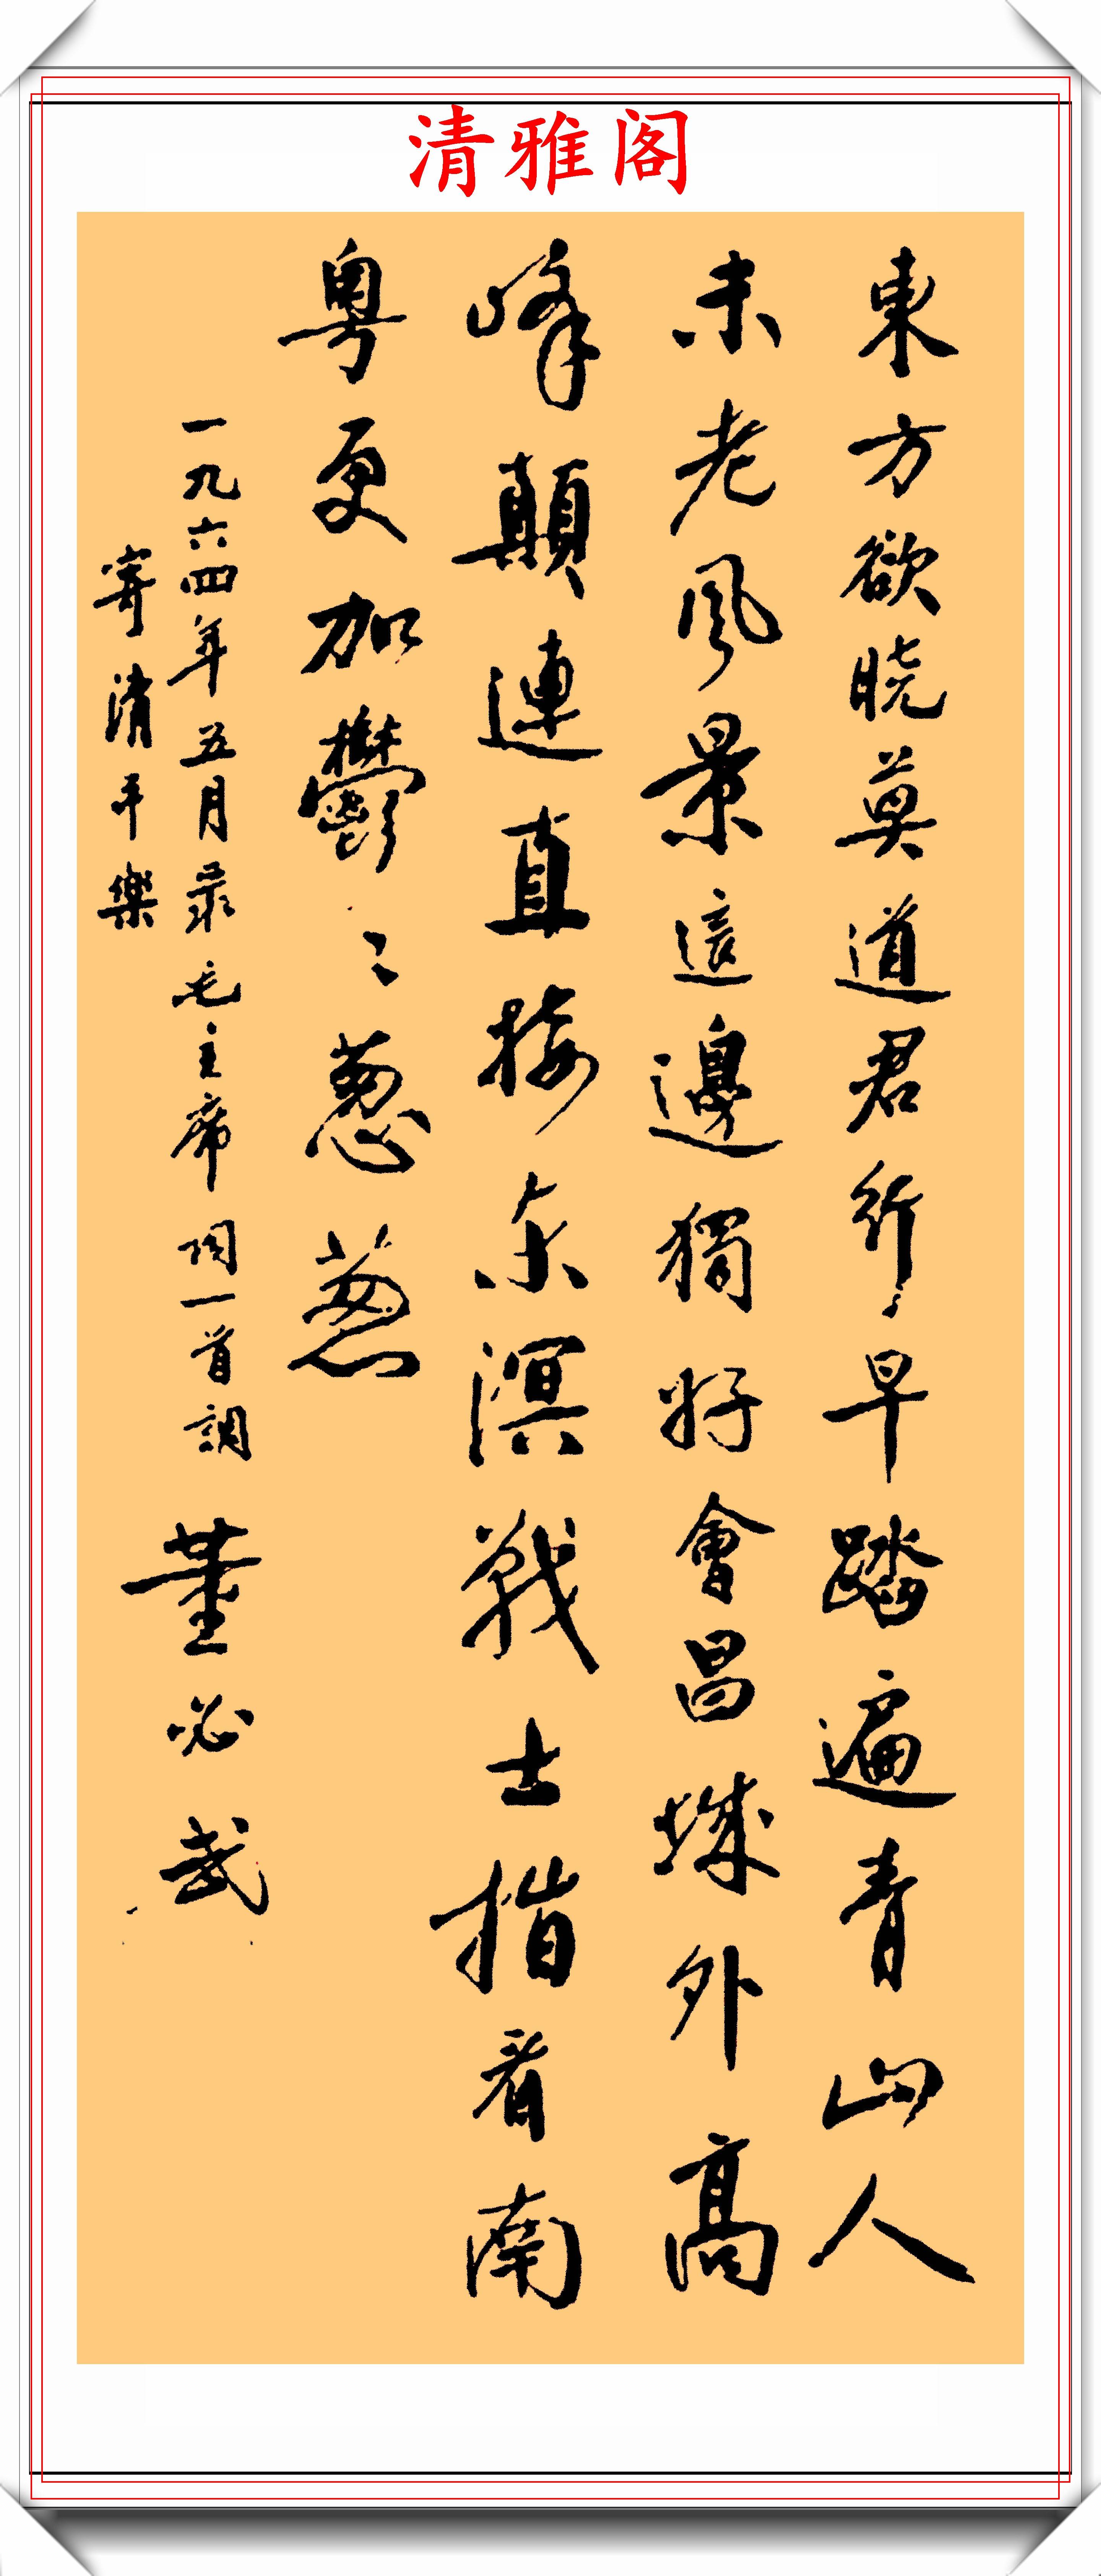 清雅阁
東方欲晓莫道君行早踏遍青山人
未老风景這邊獨好會昌城外高
峰顛連直接东溟戰士指看南
粤更加鬱〻葱葱
一九六四年五月录毛主席词一首調
寄清平樂
董必武